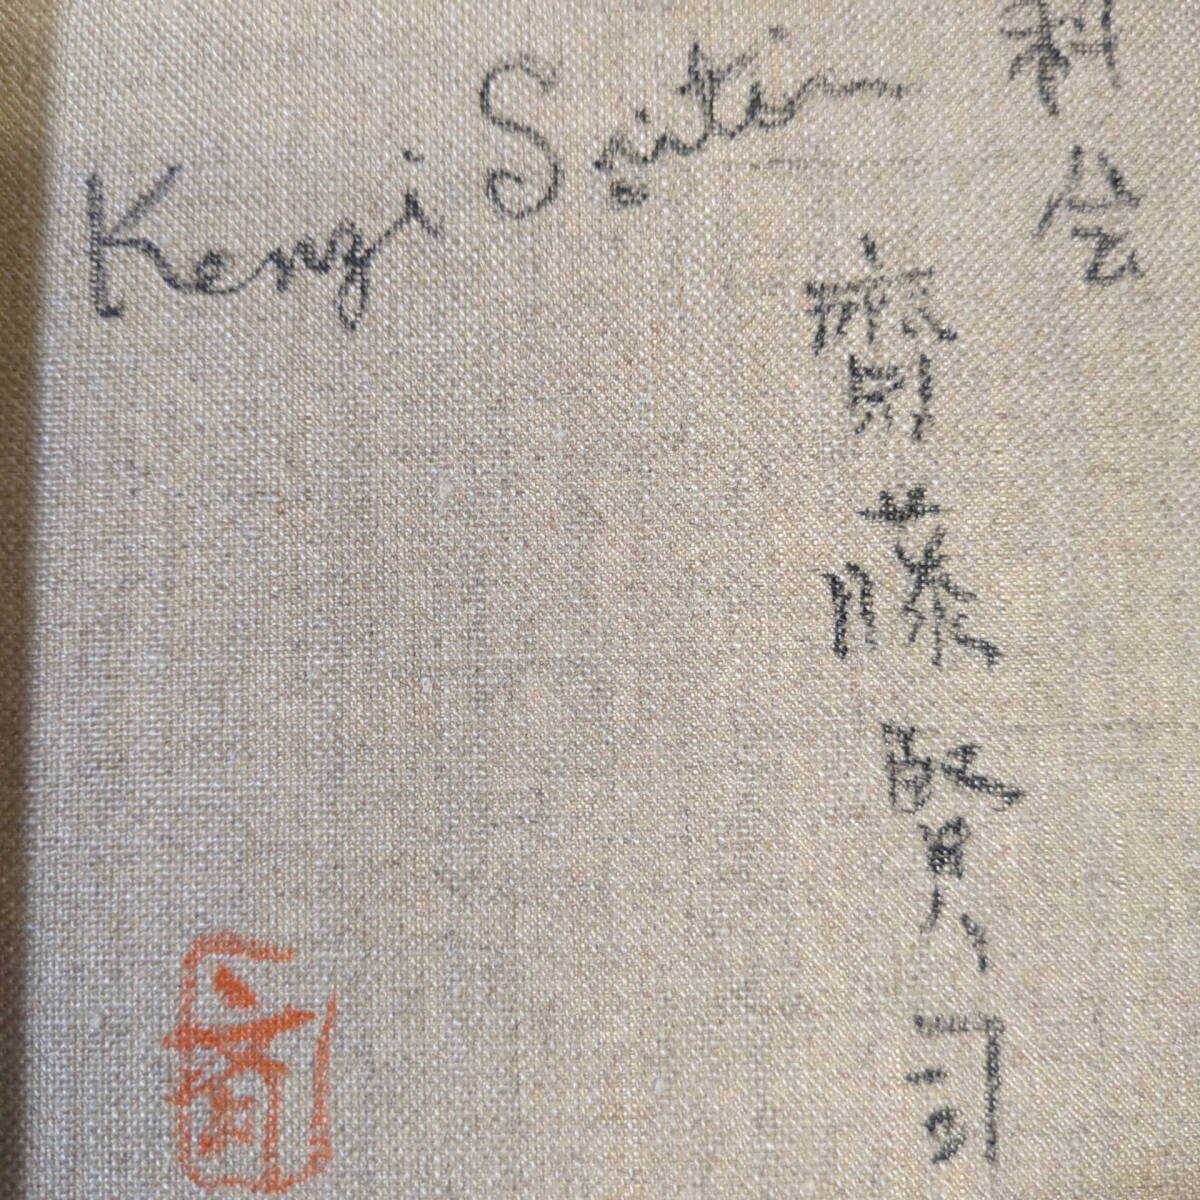 Kenzi Saito
会
齋藤賢司